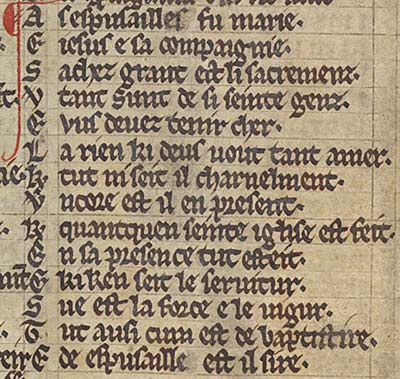 A s espusailles fu marie.
E iesus e sa compaignie.
S achez grant est li sacrement.
V tant sunt de si seinte gent.
E vus deuez tenir cher.
L a rien ki deus uout tant amer.
K tut m seit il charnelment.
V ncore est il en present.
K quantquen seinte iglise est feit.
E n sa presence tut esteit.
E ki ken seit le seruitur.
S ue est la force e le uigur.
T ut ausi cum est de baptistire.
E de espusaille est il sire.